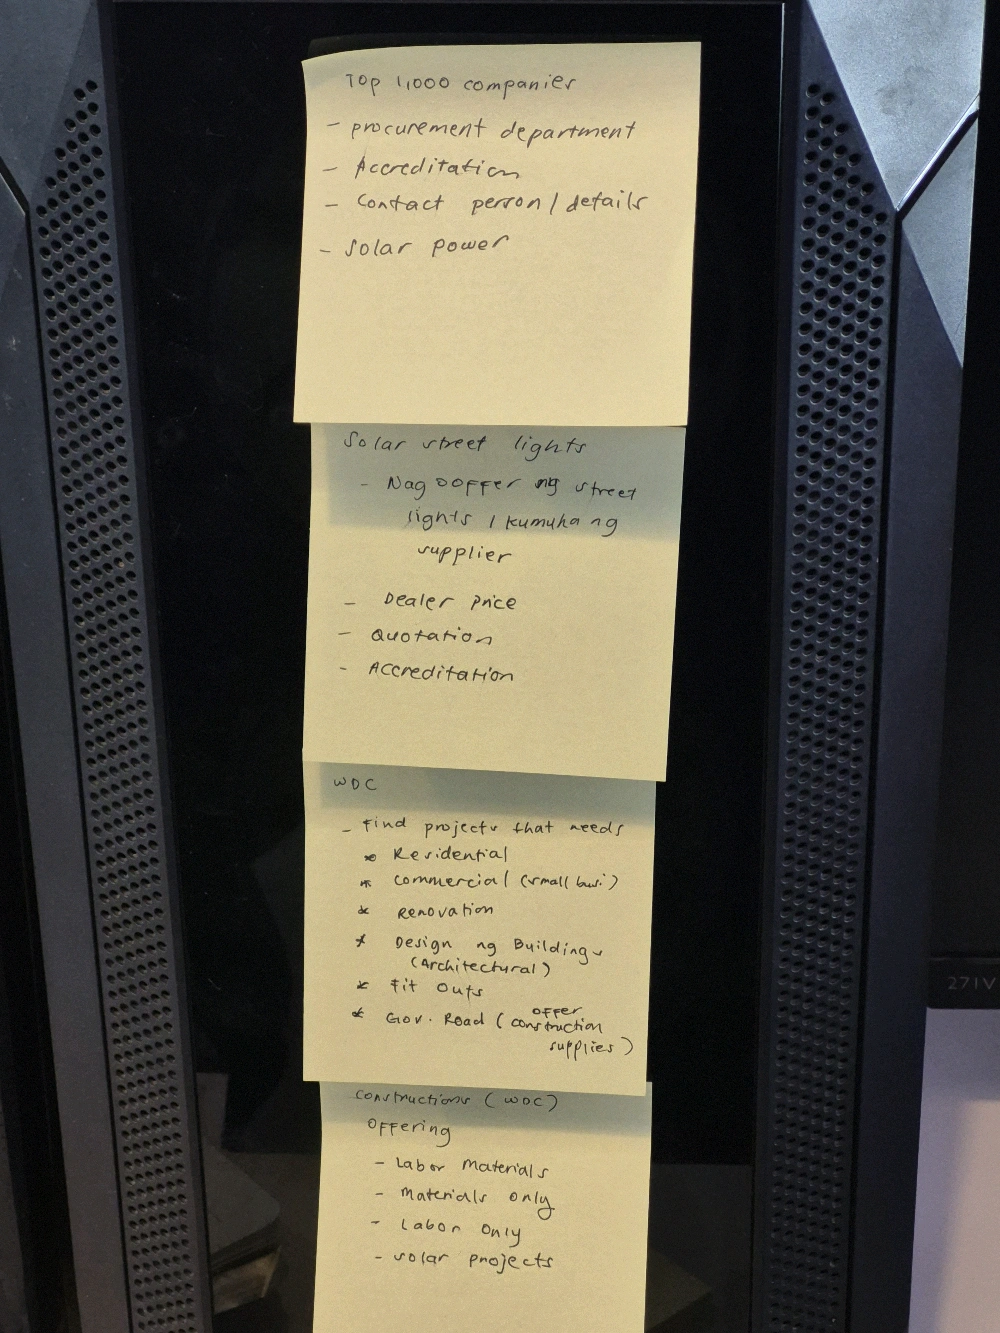 Top 1,000 companies
- procurement department
- Accreditation
- Contact person / details
- Solar power
Solar street lights
- Nag ooffer ng street
lights / kumuha ng
supplier
- Dealer price
- Quotation
- Accreditation
WDC
- Find projects that needs
* Residential
* Commercial (small busi.)
* Renovation
* Design ng Buildings
(Architectural)
* Fit Outs
* Gov. Road ( offer
construction
supplies )
Constructions (WDC)
Offering
- Labor Materials
- Materials only
- Labor Only
- Solar projects
271V